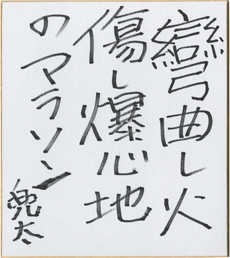 彎曲し火
傷し爆心地
のマラソン
兜太